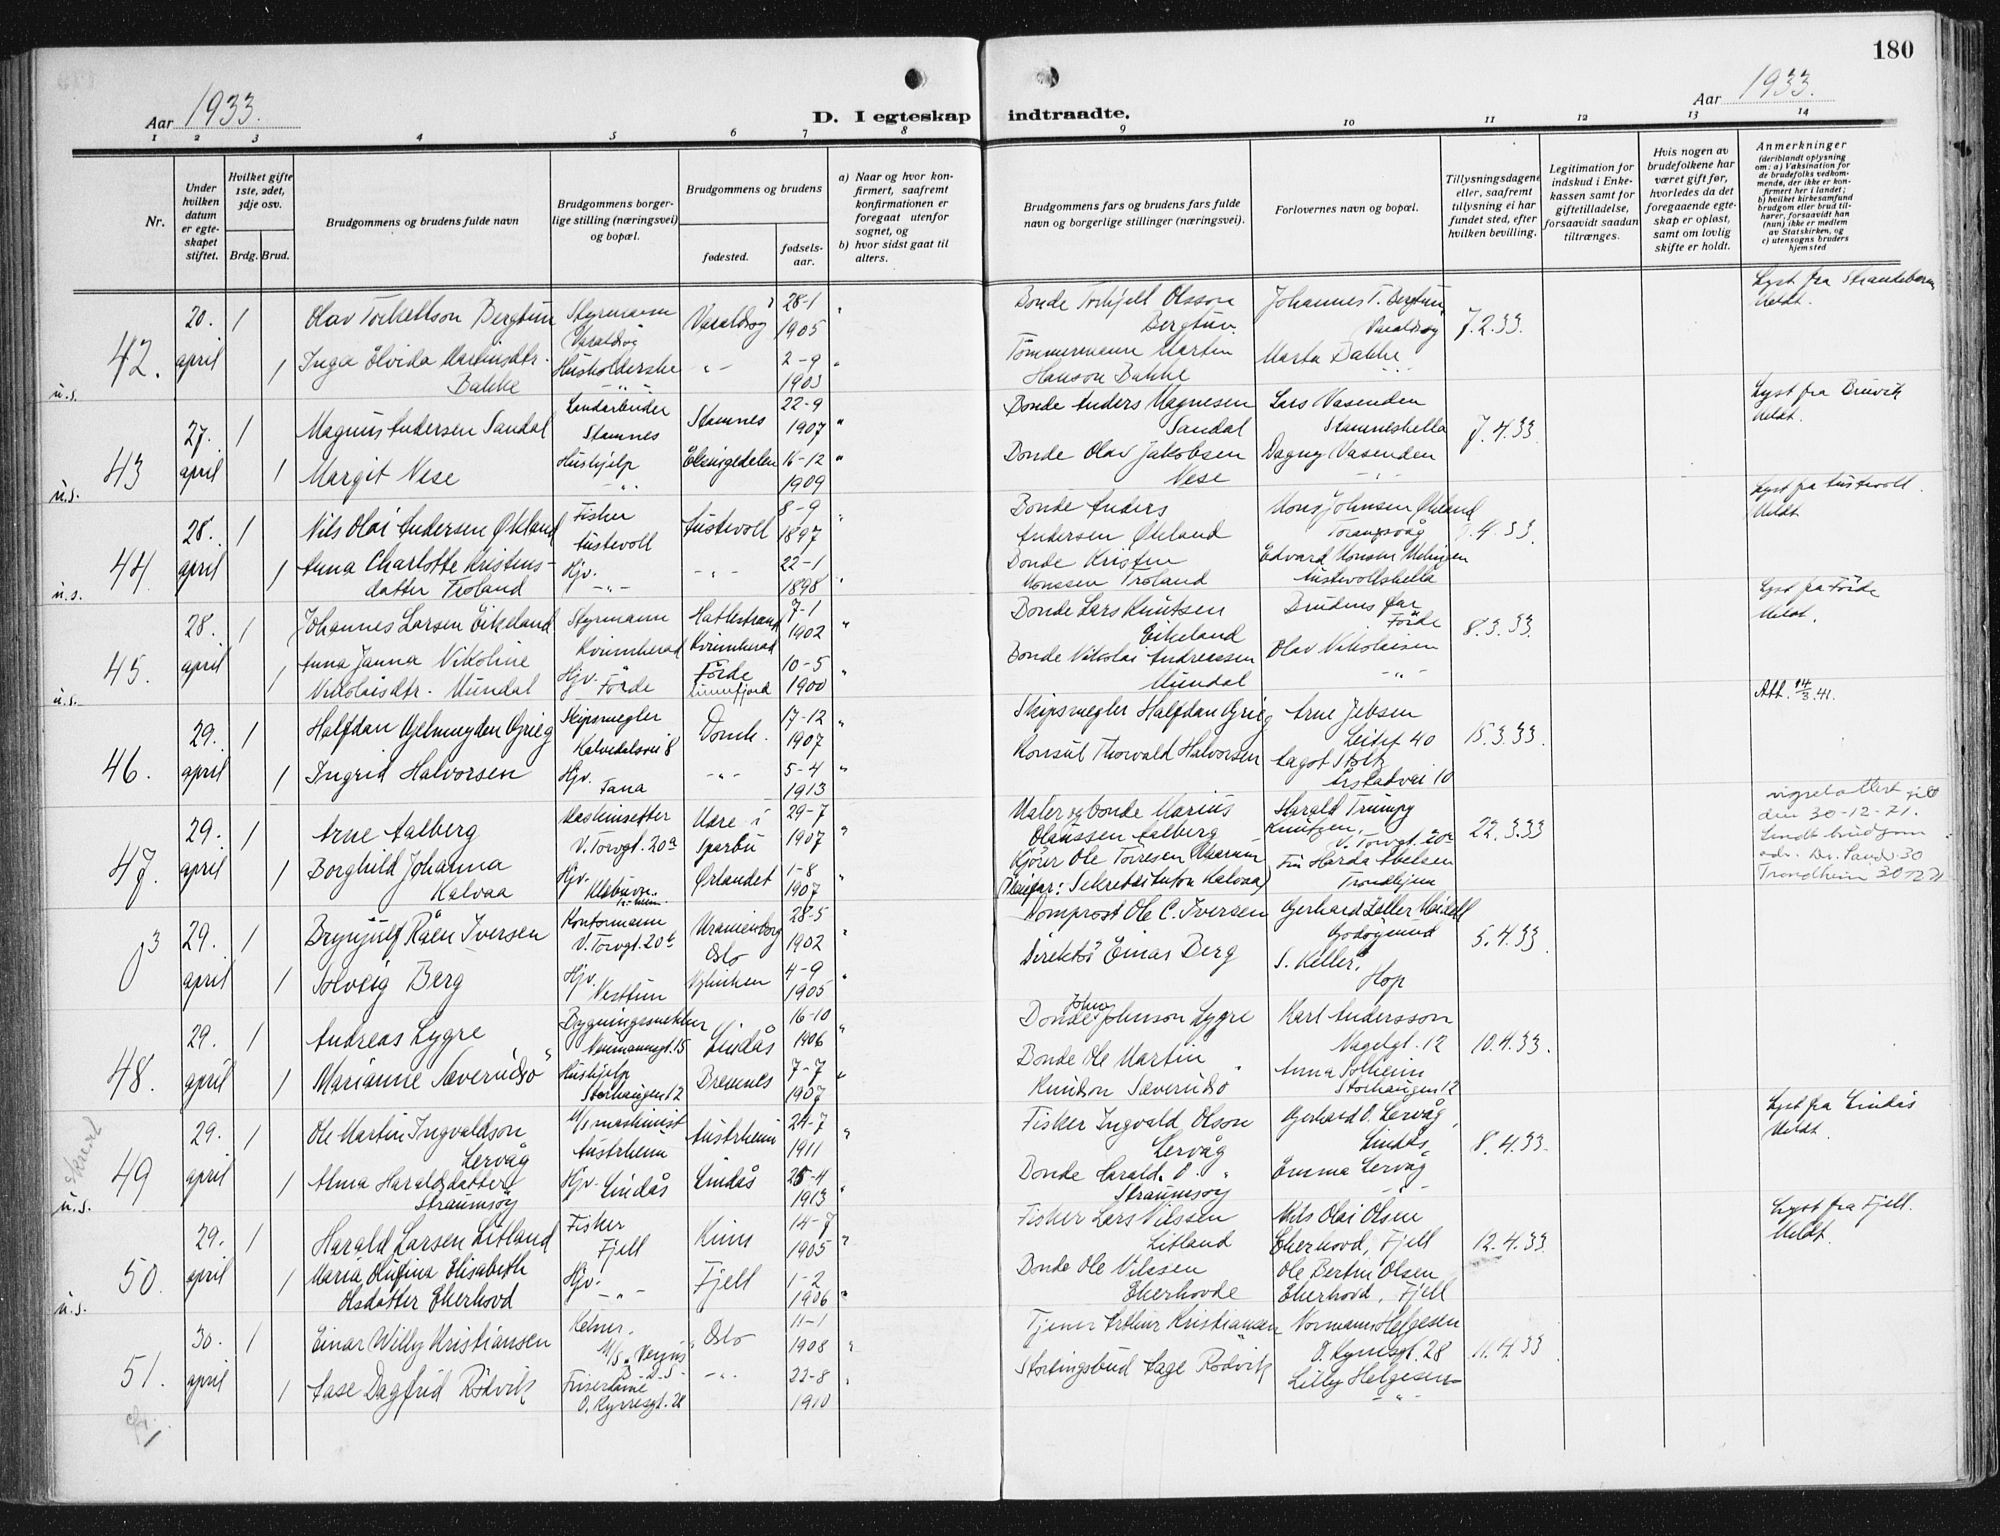 180
Aar 1933.
D. I egteskap indtraadte.
Aar 1933.
1 2 3 4 5 6 7 8 9 10 11 12 13 14
Nr.
Under hvilken datum er egteskapet stiftet.
Hvilket gifte 1ste, 2det, 3dje osv.
Brdg. Brud.
Brudgommens og brudens fulde navn
Brudgommens borgerlige stilling (næringsvei) og bopæl.
Brudgommens og brudens
fødested.
fødselsaar.
a) Naar og hvor konfirmert, saafremt konfirmationen er foregaat utenfor sognet, og
b) hvor sidst gaat til alters.
Brudgommens fars og brudens fars fulde navn og borgerlige stillinger (næringsvei).
Forlovernes navn og bopæl.
Tillysningsdagene eller, saafremt tillysning ei har fundet sted, efter hvilken bevilling.
Legitimation for indskud i Enkekassen samt for giftetilladelse, forsaavidt saadan tiltrænges.
Hvis nogen av brudefolkene har været gift før, hvorledes da det foregaaende egteskap er opløst, samt om lovlig skifte er holdt.
Anmerkninger
(deriblandt oplysning om: a) Vaksination for de brudefolks vedkommende, der ikke er konfirmert her i landet; b) hvilket kirkesamfund brudgom eller brud tilhører, forsaavidt han (hun) ikke er medlem av Statskirken, og c) utensogns bruders hjemsted
42. u.s.
20. april 1 1
Olav Torkellson Bergtun Styrmann Varaldsøy Varaldsøy 28-1 1905
Inga Elvida Martinsdtr. Bakke Husholderske 2-9 1903
Bonde Torkjell Olsson Bergtun. Johannes T. Bergtun Varaldsøy 7.2.33.
Tømmermann Martin Hanson Bakke Marta Bakke
Lyst fra Strandebarm Meldt.
43 u.s.
27. april 1 1
Magnus Andersen Sandal Landarbeider Stamnes Stamnes 22-9 1907
Margit Nese Hushjelp 16-12 1909
Bonde Anders Magnesen Sandal Lars Vasenden Stamneshella 7.4.33.
Bonde Olav Jakobsen Nese Dagny Vasenden
Lyst fra Bruvik Meldt.
44 u.s.
28. april 1 1
Nils Olai Andersen Økland Fisker Austevoll Austevoll 8-9 1897
Anna Charlotte Kristensdatter Troland Hjv. 22-1 1898
Bonde Anders Andersen Økland Mons Johnsen Økland 4.33
Bonde Kristen Monssen Troland Edvard Monsen Austevollshella
Lyst fra Austevoll. Meldt.
45. u.s.
28. april 1 1
Johannes Larsen Eikeland Styrmann Kvinnherad Hatlestrand Kvinnherad 7-1 1902
Anna Janna Nikoline Nikolaisdtr. Mundal Hjv. Förde Förde 10-5 1900
Bonde Lars Knutsen Eikeland Brudens far Förde 8.3.33.
Bonde Nikolai Andreassen Mundal Olav Nikolaisen
Lyst fra Förde Meldt.
46.
29. april 1 1
Halfdan Gjelmuyden Grieg Skipsmegler Kalvedalsvei 8 Domk. 17-12 1907
Ingrid Halvorsen Hjv. Fana 5-4 1913
Skipsmegler Halfdan Grieg Arne Jebsen 40 15.3.33.
Konsul Thorvald Halvorsen Aagot Stoltz Årstadvei 10
Att. 14/3.41.
47.
29. april 1 1
Arne Aalberg V. Torvgt. 20a Sparbu 29-7 1907
Borghild Johanna Kalvaa Hjv. Ørlandet 1-8 1907
Maler og bonde Marius Olaussen Aalberg Harald Trumpy Knutzen, V. Torvgt. 20a 22.3.33
Kjörer Ole Torresen Fru Abelsen Trondhjem
Sekretær Anton Kalvaa)
den 30-12-71.
Sendt brudgom
Trondheim 30 12 71
29. april 1 1
Brynjulf Råen Iversen Kontormann V. Torvgt. 20a Uranienborg Oslo 28-5 1902
Solveig Berg Hjv. Nesttun 4-9 1905
Domprost Ole C. Iversen Gerhard Zeller Meidell 5.4.33.
Direktör Einar Berg S. Keller, Hop
48.
29. april 1 1
Andreas Lygre Neumannsgt. 15 Lindås 16-10 1906
Marianne Sæveridsø Hushjelp Storhaugen 12 Bremnes 7-7 1907
Bonde Johs Johnson Lygre Karl Andersson Nagelgt. 12 10.4.33.
Bonde Ole Martin Knudson Sæveridsø Anna Solheim Storhaugen 12
49 u.s.
29. april 1 1
Ole Martin Ingvaldson Lervåg maskinist Austrheim Austrheim 24-7 1911
Alma Haraldsdatter Straumsøy Hjv. Lindås Lindås 25-4 1913
Fisker Ingvald Olsson Lervåg Gerhard O. Lervåg, Lindås 8.4.33.
Bonde Harald O. Straumsøy Emma Lervåg
Lyst fra Lindås Meldt.
50. u.s.
29. april 1 1
Harald Larsen Litland Fisker Fjell Kinn 14-7 1905
Maria Olufina Elisabeth Olsdatter Ekerhovd Hjv. Fjell 1-2 1906
Fisker Lars Nilssen Litland Nils Olai Olsen Ekerhovd, Fjell 12.4.33.
Bonde Ole Nilssen Ekerhovde Ole Bertin Olsen Ekerhovd, Fjell
Lyst fra Fjell. Meldt.
51.
30. april 1 1
Einar Willy Kristiansen Kelner. M/S "Venus" B.D.S. Oslo 11-1 1908
Aase Dagfrid Rødvik Friserdame O. Kyrresgt. 28 22-8 1910
Tjener Arthur Kristiansen Normann Helgesen O. Kyrresgt. 28 11.4.33
Stortingsbud Aage Rødvik Lilly Helgesen